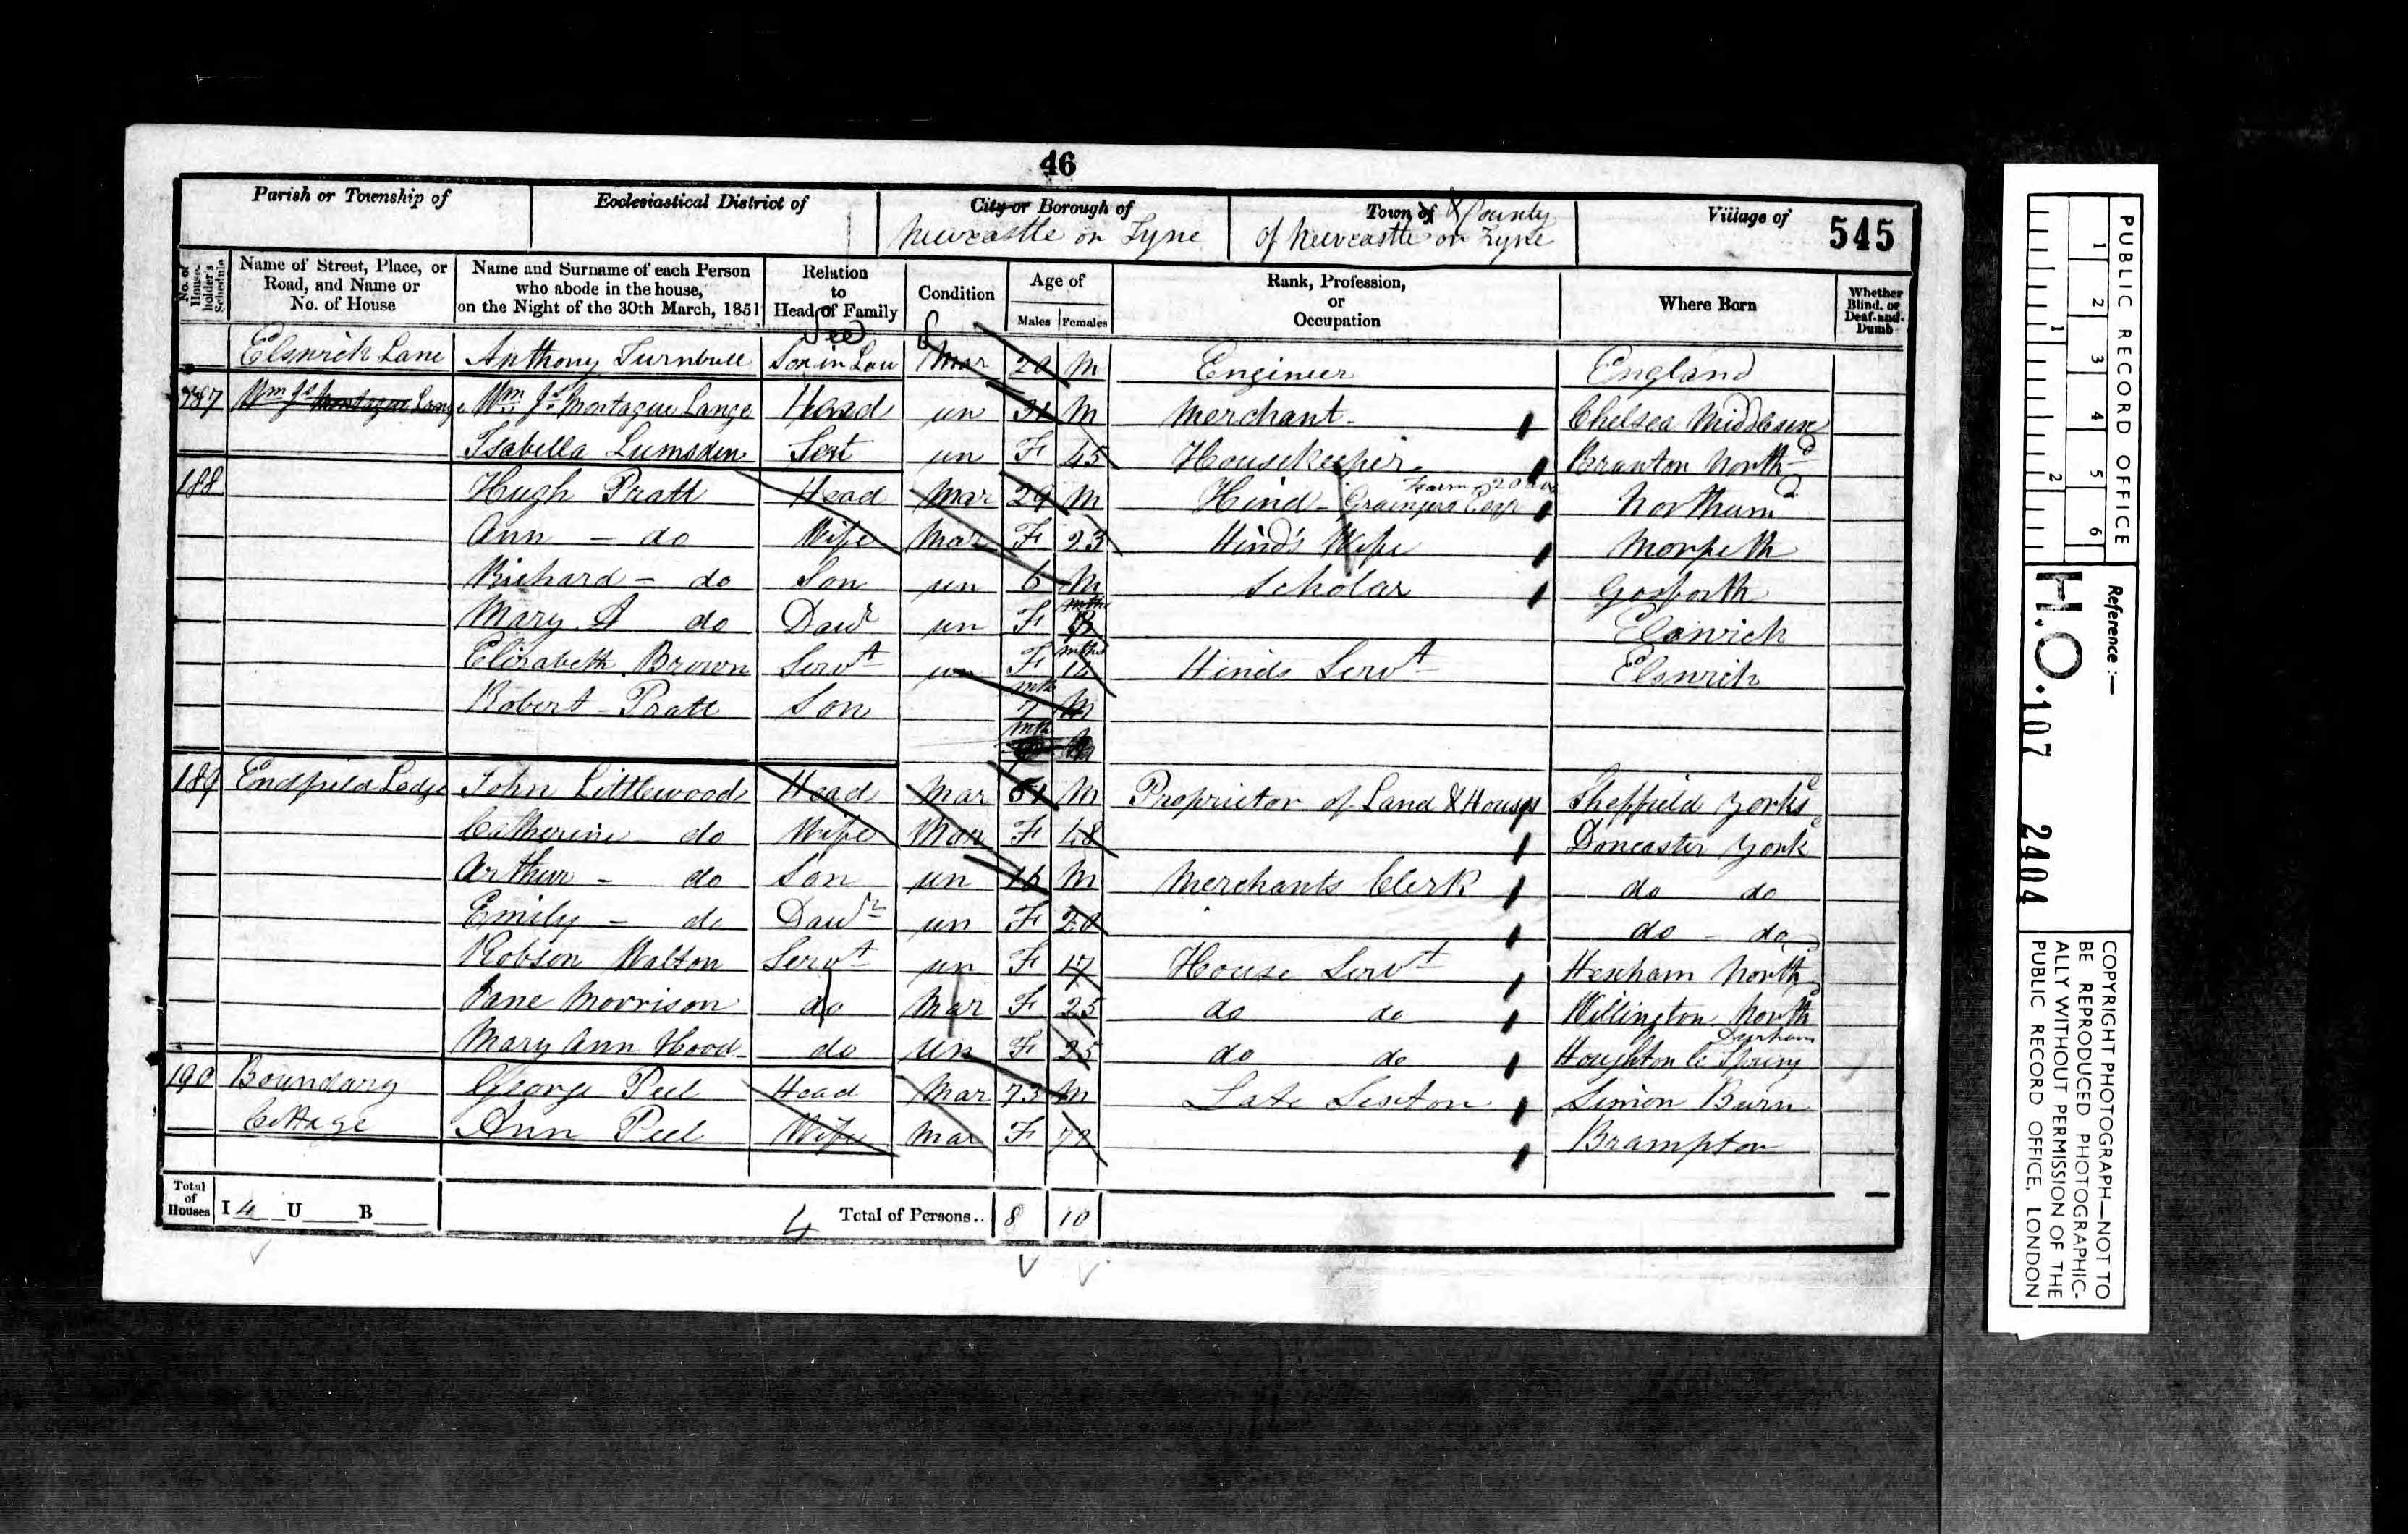 46
Parish or Township of Ecclesiastical District of City or Borough of Town of & County Village of 545
Newcastle on Tyne of Newcastle on Tyne
No. of House-holder's Schedule Name of Street, Place, or Road, and Name or No. of House Name and Surname of each Person who abode in the house, on the Night of the 30th March, 1851 Relation to Head of Family Condition Age of Males Females Rank, Profession, or Occupation Where Born Whether Blind, or Deaf-and-Dumb
Elswick Lane Anthony Turnbull Son in Law Mar 20 M Engineer England
187 Wm Js Montague Lange Wm Js Montague Lange Head un 31 M Merchant Chelsea Middlesex
Isabella Lumsden Servt un F 45 Housekeeper Branton Northd
188 Hugh Pratt Head Mar 29 M Hind Farm Northumd
Ann - do Wife Mar F 23 Hind's Wife Morpeth
Richard - do Son un 6 M Scholar Gosforth
Mary A do Daur un F mths Elswick
Elizabeth Brown Servt un F mths 14 Hinds Servt Elswick
Robert - Pratt Son mth 7 M
mth
189 Endfield Lodge John Littlewood Head Mar 51 M Proprietor of Land & Houses Sheffield Yorks
Catherine do Wife Mar F 48 Doncaster York
Arthur - do Son un 16 M Merchants Clerk do do
Emily - do Daur un F 20 do - do
Robson Walton Servt un F 17 House Servt Hexham North
Jane Morrison do Mar F 25 do do Willington North
Mary Ann Hood do un F 25 do do Houghton le Spring Durham
190 Boundary George Peel Head Mar 73 M Late Sexton Simon Burn
Cottage Ann Peel Wife Mar F 72 Brampton
Total of Houses I 4 U B 4 Total of Persons.. 8 10
PUBLIC RECORD OFFICE
1 2 3 4 5 6
1 2
Reference :—
H.O. 107 2404
COPYRIGHT PHOTOGRAPH—NOT TO
BE REPRODUCED PHOTOGRAPHIC-
ALLY WITHOUT PERMISSION OF THE
PUBLIC RECORD OFFICE, LONDON